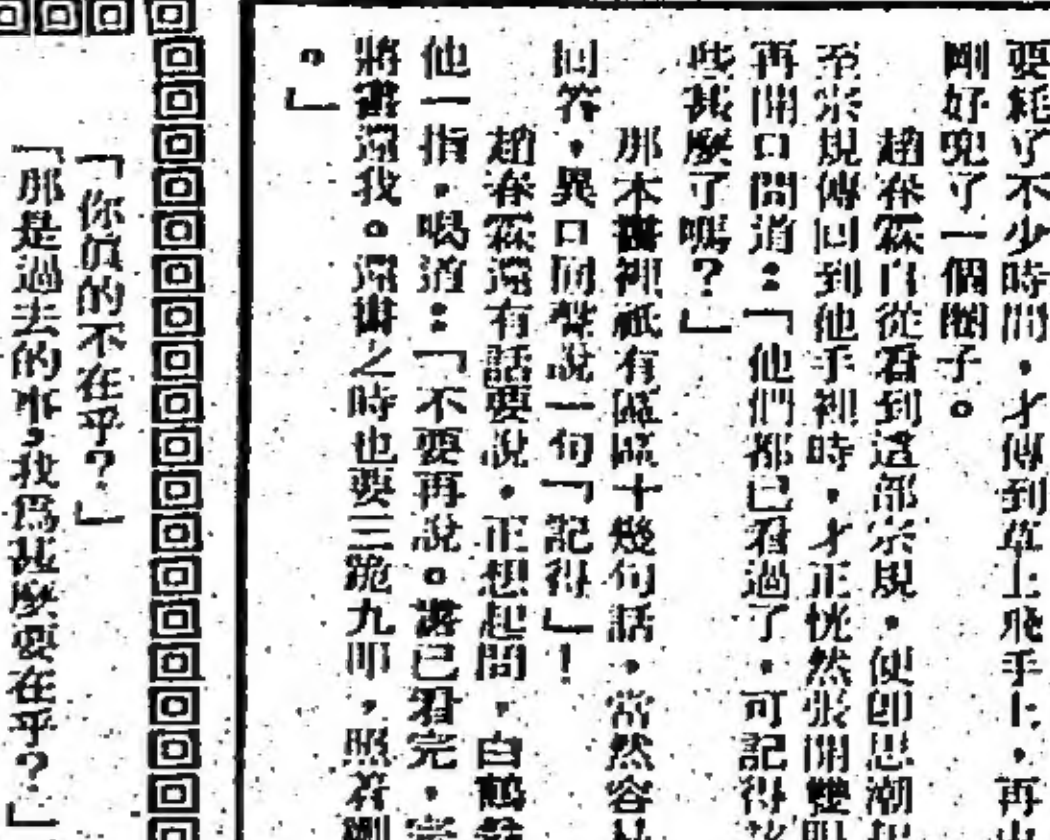 要耗了不少時間，才傳到草上飛手上，再
剛好兜了一個圈子。
趙春霖自從看到這部宗規，便卽思潮起
至宗規傳回到他手裡時，才正恍然張開雙眼
再開口問道：「他們都已看過了，可記得
些甚麼了嗎？」
那本書裡祇有區區十幾句話，當然容易
回答，異口同聲說一句「記得」！
趙春霖還有話要說，正想起問，白鶴
他一指，喝道：「不要再說。書已看完，
將書還我。還書之時也要三跪九叩，照着剛
。」
「你眞的不在乎？」
「那是過去的事，我爲甚麼要在乎？」